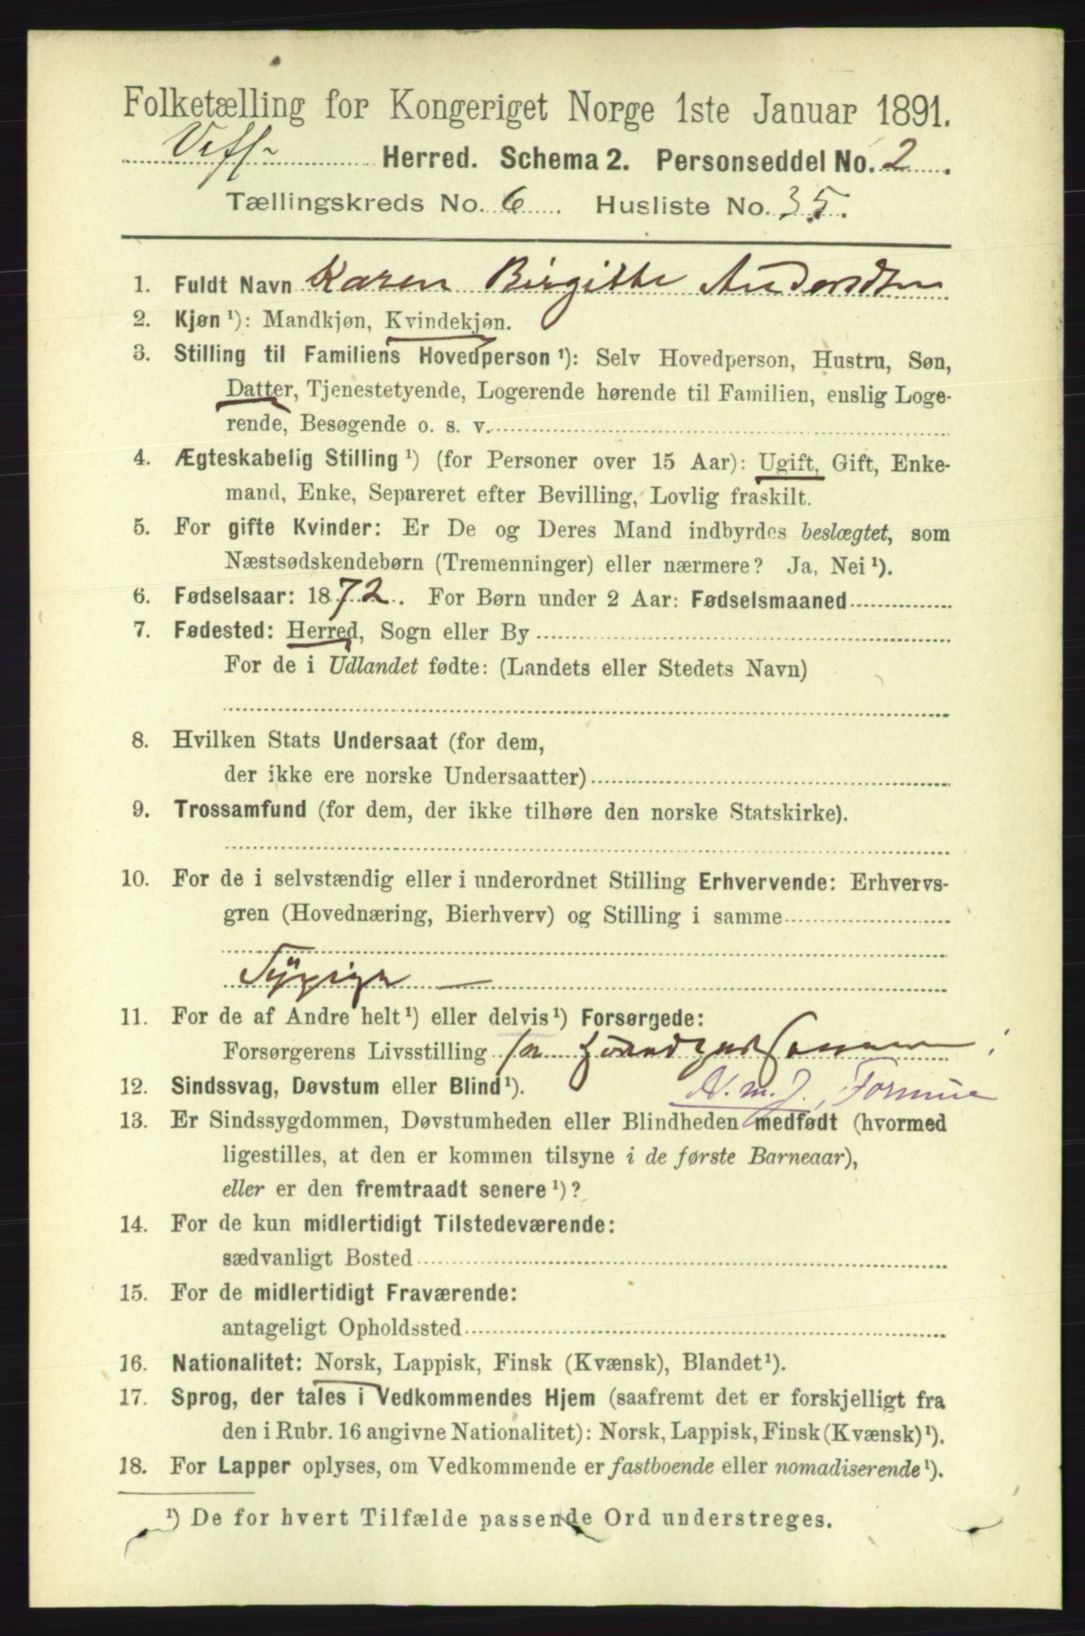 Folketælling for Kongeriget Norge 1ste Januar 1891.
Herred. Schema 2. Personseddel No. 2.
Tællingskreds No. 6. Husliste No. 35.
1. Fuldt Navn Karen Birgitte Andersdtr
2. Kjøn ¹): Mandkjøn, Kvindekjøn.
3. Stilling til Familiens Hovedperson ¹): Selv Hovedperson, Hustru, Søn,
Datter, Tjenestetyende, Logerende hørende til Familien, enslig Loge-
rende, Besøgende o. s. v.
4. Ægteskabelig Stilling ¹) (for Personer over 15 Aar): Ugift, Gift, Enke-
mand, Enke, Separeret efter Bevilling, Lovlig fraskilt.
5. For gifte Kvinder: Er De og Deres Mand indbyrdes beslægtet, som
Næstsødskendebørn (Tremenninger) eller nærmere? Ja, Nei ¹).
6. Fødselsaar: 1872. For Børn under 2 Aar: Fødselsmaaned
7. Fødested: Herred, Sogn eller By
For de i Udlandet fødte: (Landets eller Stedets Navn)
8. Hvilken Stats Undersaat (for dem,
der ikke ere norske Undersaatter)
9. Trossamfund (for dem, der ikke tilhøre den norske Statskirke).
10. For de i selvstændig eller i underordnet Stilling Erhvervende: Erhvervs-
gren (Hovednæring, Bierhverv) og Stilling i samme
11. For de af Andre helt ¹) eller delvis ¹) Forsørgede:
Forsørgerens Livsstilling
12. Sindssvag, Døvstum eller Blind ¹). N. m. J., Formue
13. Er Sindssygdommen, Døvstumheden eller Blindheden medfødt (hvormed
ligestilles, at den er kommen tilsyne i de første Barneaar),
eller er den fremtraadt senere ¹)?
14. For de kun midlertidigt Tilstedeværende:
sædvanligt Bosted
15. For de midlertidigt Fraværende:
antageligt Opholdssted
16. Nationalitet: Norsk, Lappisk, Finsk (Kvænsk), Blandet ¹).
17. Sprog, der tales i Vedkommendes Hjem (saafremt det er forskjelligt fra
den i Rubr. 16 angivne Nationalitet): Norsk, Lappisk, Finsk (Kvænsk) ¹).
18. For Lapper oplyses, om Vedkommende er fastboende eller nomadiserende ¹).
¹) De for hvert Tilfælde passende Ord understreges.